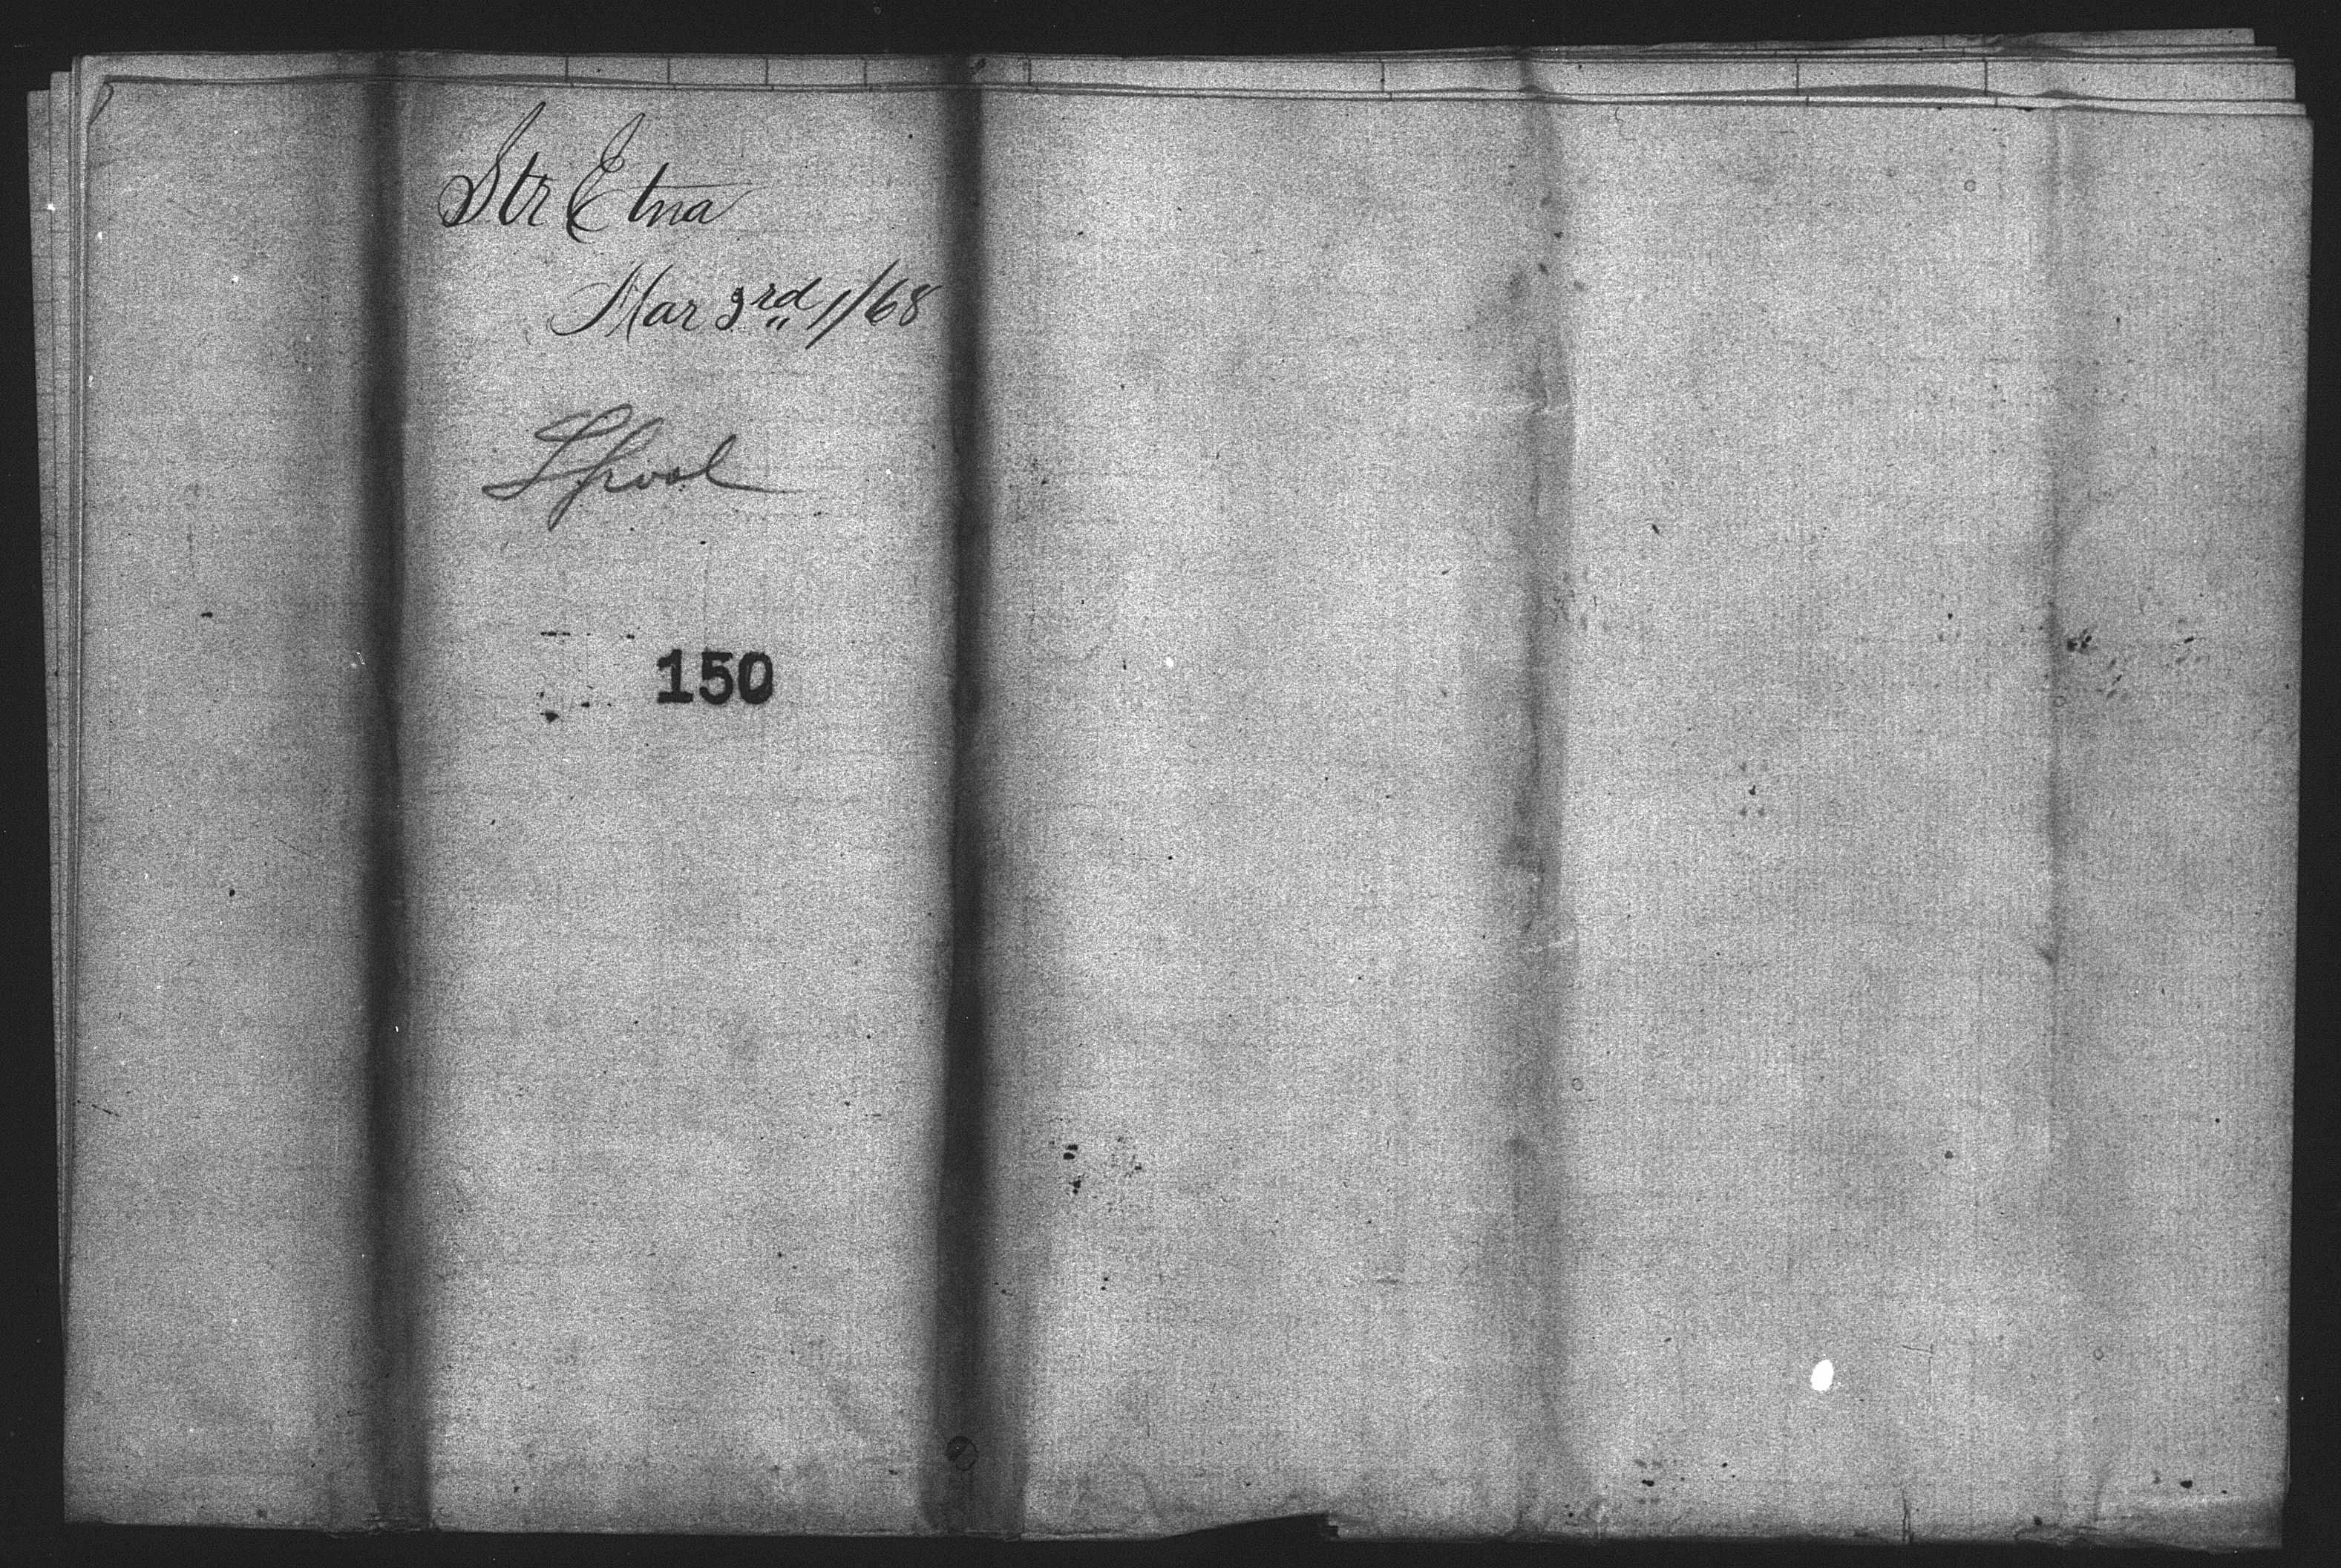 Str Etna
Mar 3rd 1/68
Lpool
150